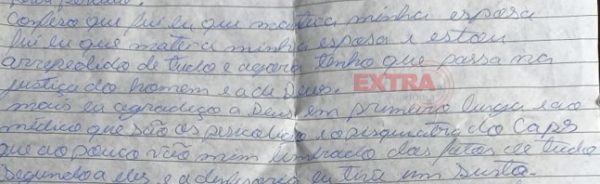 confeso que fui eu que matéia minha esposa
fui eu que matei a minha esposa e estou
arrepedido de tudo e agora tenho que passa na
justiça do homem e a de Deus.
EXTRA
mais eu agradeço a Deus em primeiro lugar e ao
médico que são os piscolico e o pisquiatra do Caps
que ao pouco vão mim lembrado das fatos de tudo
segundo a eles, e a defensoria eu tive um surto.